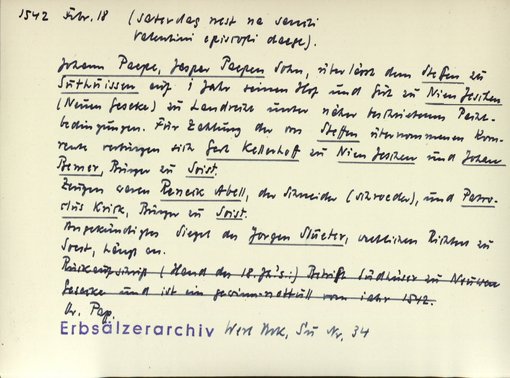 1542 Febr. 18 (saterdag nest na sancti
valentini episcopi daege).
Johann Paepe, Jasper Paepen Sohn, überlässt dem Steffen zu
Suthusen auf 1 Jahr seinen Hof und Gut zu Nien Jeschen
(Neuen Geseke) zu Landrecht unter näher beschriebenen Pacht-
bedingungen. Für Zahlung der von Steffen übernommenen Korn-
rente verbürgen sich Gert Kellerhoff zu Nien Jeschen und Johan
Bemer, Bürger zu Soist.
Zeugen waren Reneik Abell, der Schneider (schroeder), und Patro-
clus Krisk, Bürger zu Soist.
Angekündigtes Siegel des Jorgen Slueter, weltlichen Richters zu
Soest, hängt an.
Rückaufschrift (Hand des 18. Jh's.:) Betrifft Südhüser zu Neuwen
Geseke und ist ein gewinnnottull vom iahr 1542.
Or. Pap.
Erbsälzerarchiv Werl Brk, Su Nr. 34